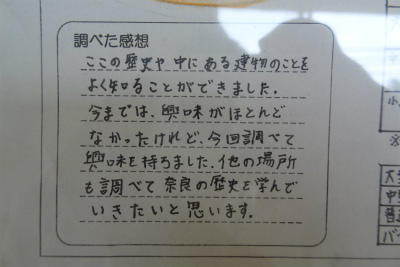 調べた感想
ここの歴史や中にある建物のことを
よく知ることができました.
今までは、興味がほとんど
なかったけれど、今回調べて
興味を持ちました.他の場所
も調べて奈良の歴史を学んで
いきたいと思います.
小
※
大
中
普
バ